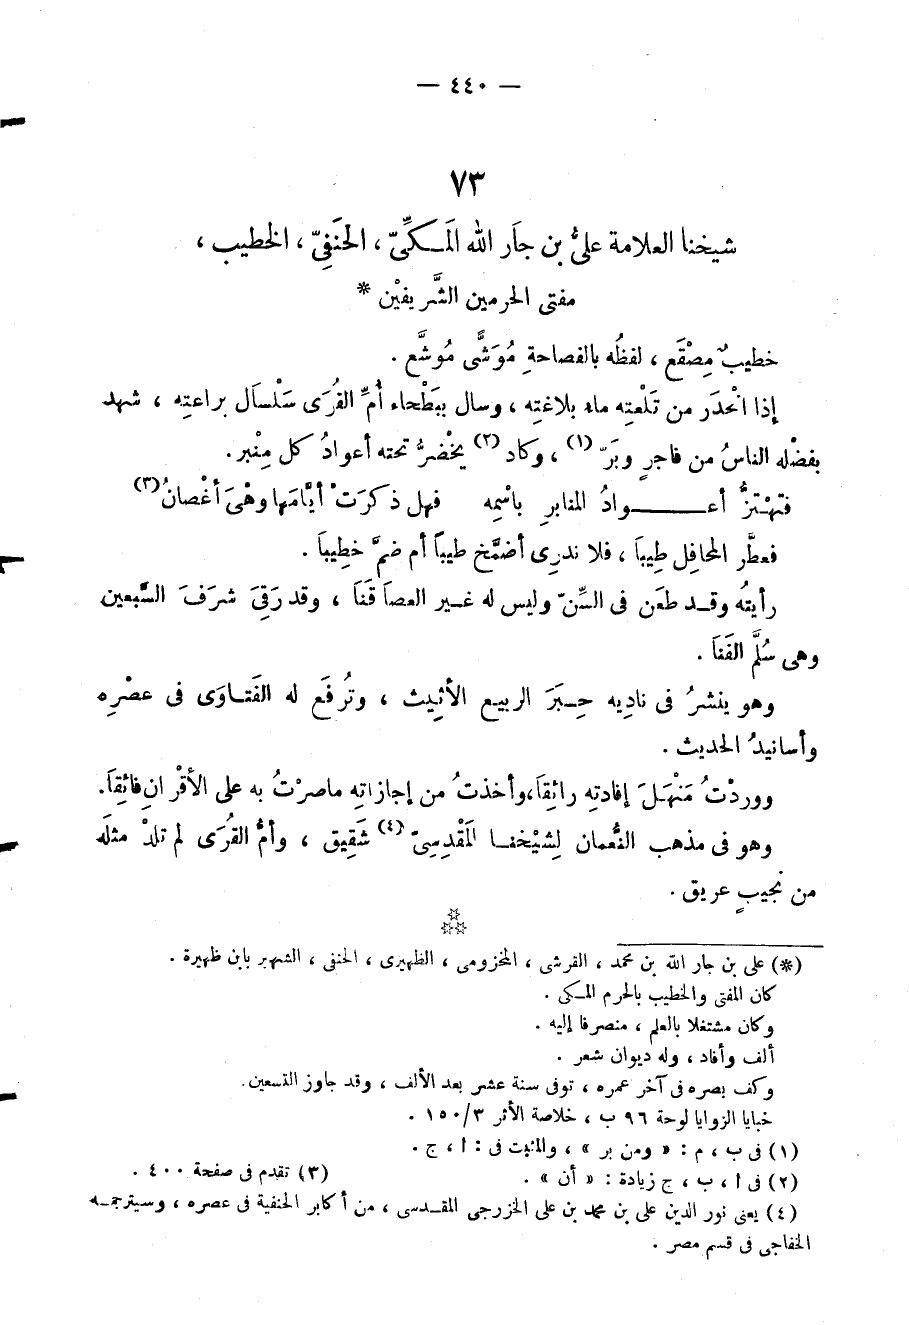 — ٤٤٠ —
٧٣
شيخنا العلامة علىُّ بن جَار الله المَـكِّىّ ، الحَنَفِىّ ، الخطيب ،
مفتى الحرمين الشَّريفيْن *
خطيبٌ مِصْقَع ، لفظُه بالفصاحةِ مُوَشًّى مُوشَّع .
إذا انْحدَر من تَلْعتِه ماء بلاغتِه ، وسال ببَطْحاء أُمِّ القُرَى سَلْسَال براعتِه ، شهد
بفضْله الناسُ من فاجرٍ وبَرّ (١) ، وكاد (٢) يخْضرُّ تحته أعوادُ كل مِنْبر .
فتهْتزُّ أعــــوادُ المنابرِ باسْمِه فهل ذكرَتْ أيَّامَها وهْىَ أغْصانُ (٣)
فعطَّر المحافِل طِيبَا ، فلا ندرِى أضمَّخ طيباً أم ضمَّ خطِيبَا .
رأيتُه وقـد طعَن فى السِّنّ وليس له غـير العصَا قَنَا ، وقد رَقِىَ شرَفَ السَّبعين
وهى سُلَّم الفَنَا .
وهو ينشرُ فى نادِيه حِـبَرَ الربيع الأثِيث ، وتُرفَع له الفَتـاوَى فى عصْرِه
وأسانيدُ الحديث .
ووردْتُ مَنْهَلَ إفادتِه رائقَا،وأخذتُ من إجازاتِه ماصرْتُ به على الأقْرانِ فائقَا.
وهو فى مذهب النُّعمان لِشيْخنـا المَقْدِسِىّ (٤) شَقِيق ، وأمُّ القُرَى لم تلدْ مثلَه
من نجيبٍ عريق .
(*) على بن جار الله بن محمد ، القرشى ، المخزومى ، الظهيرى ، الحنفى ، الشهير بابن ظهيرة .
كان المفتى والخطيب بالحرم المـكى .
وكان مشتغلا بالعلم ، منصرفا إليه .
ألف وأفاد ، وله ديوان شعر .
وكف بصره فى آخر عمره ، توفى سنة عشر بعد الألف ، وقد جاوز التسعين .
خبايا الزوايا لوحة ٩٦ ب ، خلاصة الأثر ٣/١٥٠ .
(١) فى ب ، م : « ومن بر » ، والمثبت فى : ا ، ج .
(٢) فى ا ، ب ، ج زيادة : « أن » . (٣) تقدم فى صفحة ٤٠٠ .
(٤) يعنى نور الدين على بن محمد بن على الخزرجى المقـدسى ، من أكابر الحنفية فى عصره ، وسيترجمـه
الخفاجى فى قسم مصر .